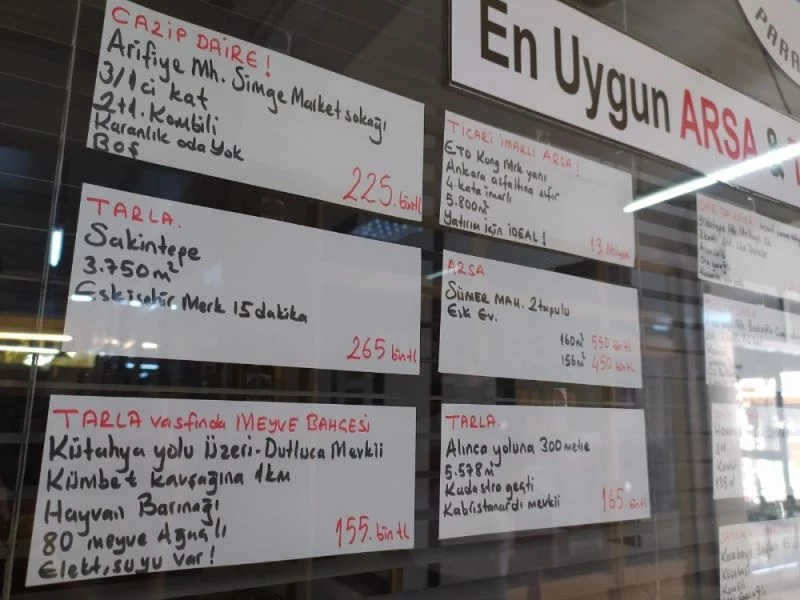 PARA
En Uygun ARSA &
CAZİP DAİRE!
Arifiye Mh. Simge Market sokağı
3/1ci kat
2+1. Kombili
Karanlık oda Yok
Boş
225.bintl
TİCARİ İMARLI ARSA!
ETO Kong Mrk yanı
Ankara asfaltına sıfır
4.kata imarlı
5.800m²
Yatırım için İDEAL!
13 Milyon
TARLA.
Sakintepe
3.750m²
Eskişehir Merk 15 dakika
265 bintl
ARSA
SÜMER MAH. 2 tapulu
Eik Ev.
160m² 550 bintl
156m² 450 bintl
TARLA vasfında MEYVE BAHÇESİ
Kütahya yolu Üzeri-Dutluca Mevkii
Kümbet kavşağına 1km
Hayvan Barınağı
80 meyve Ağaçlı
Elekt, suyu var!
155.bintl
TARLA.
Alınca yoluna 300 metre
5.578m²
Kadastro geçti
Kabristanardı mevkii
165.bintl
3+1
Kombili
135m²